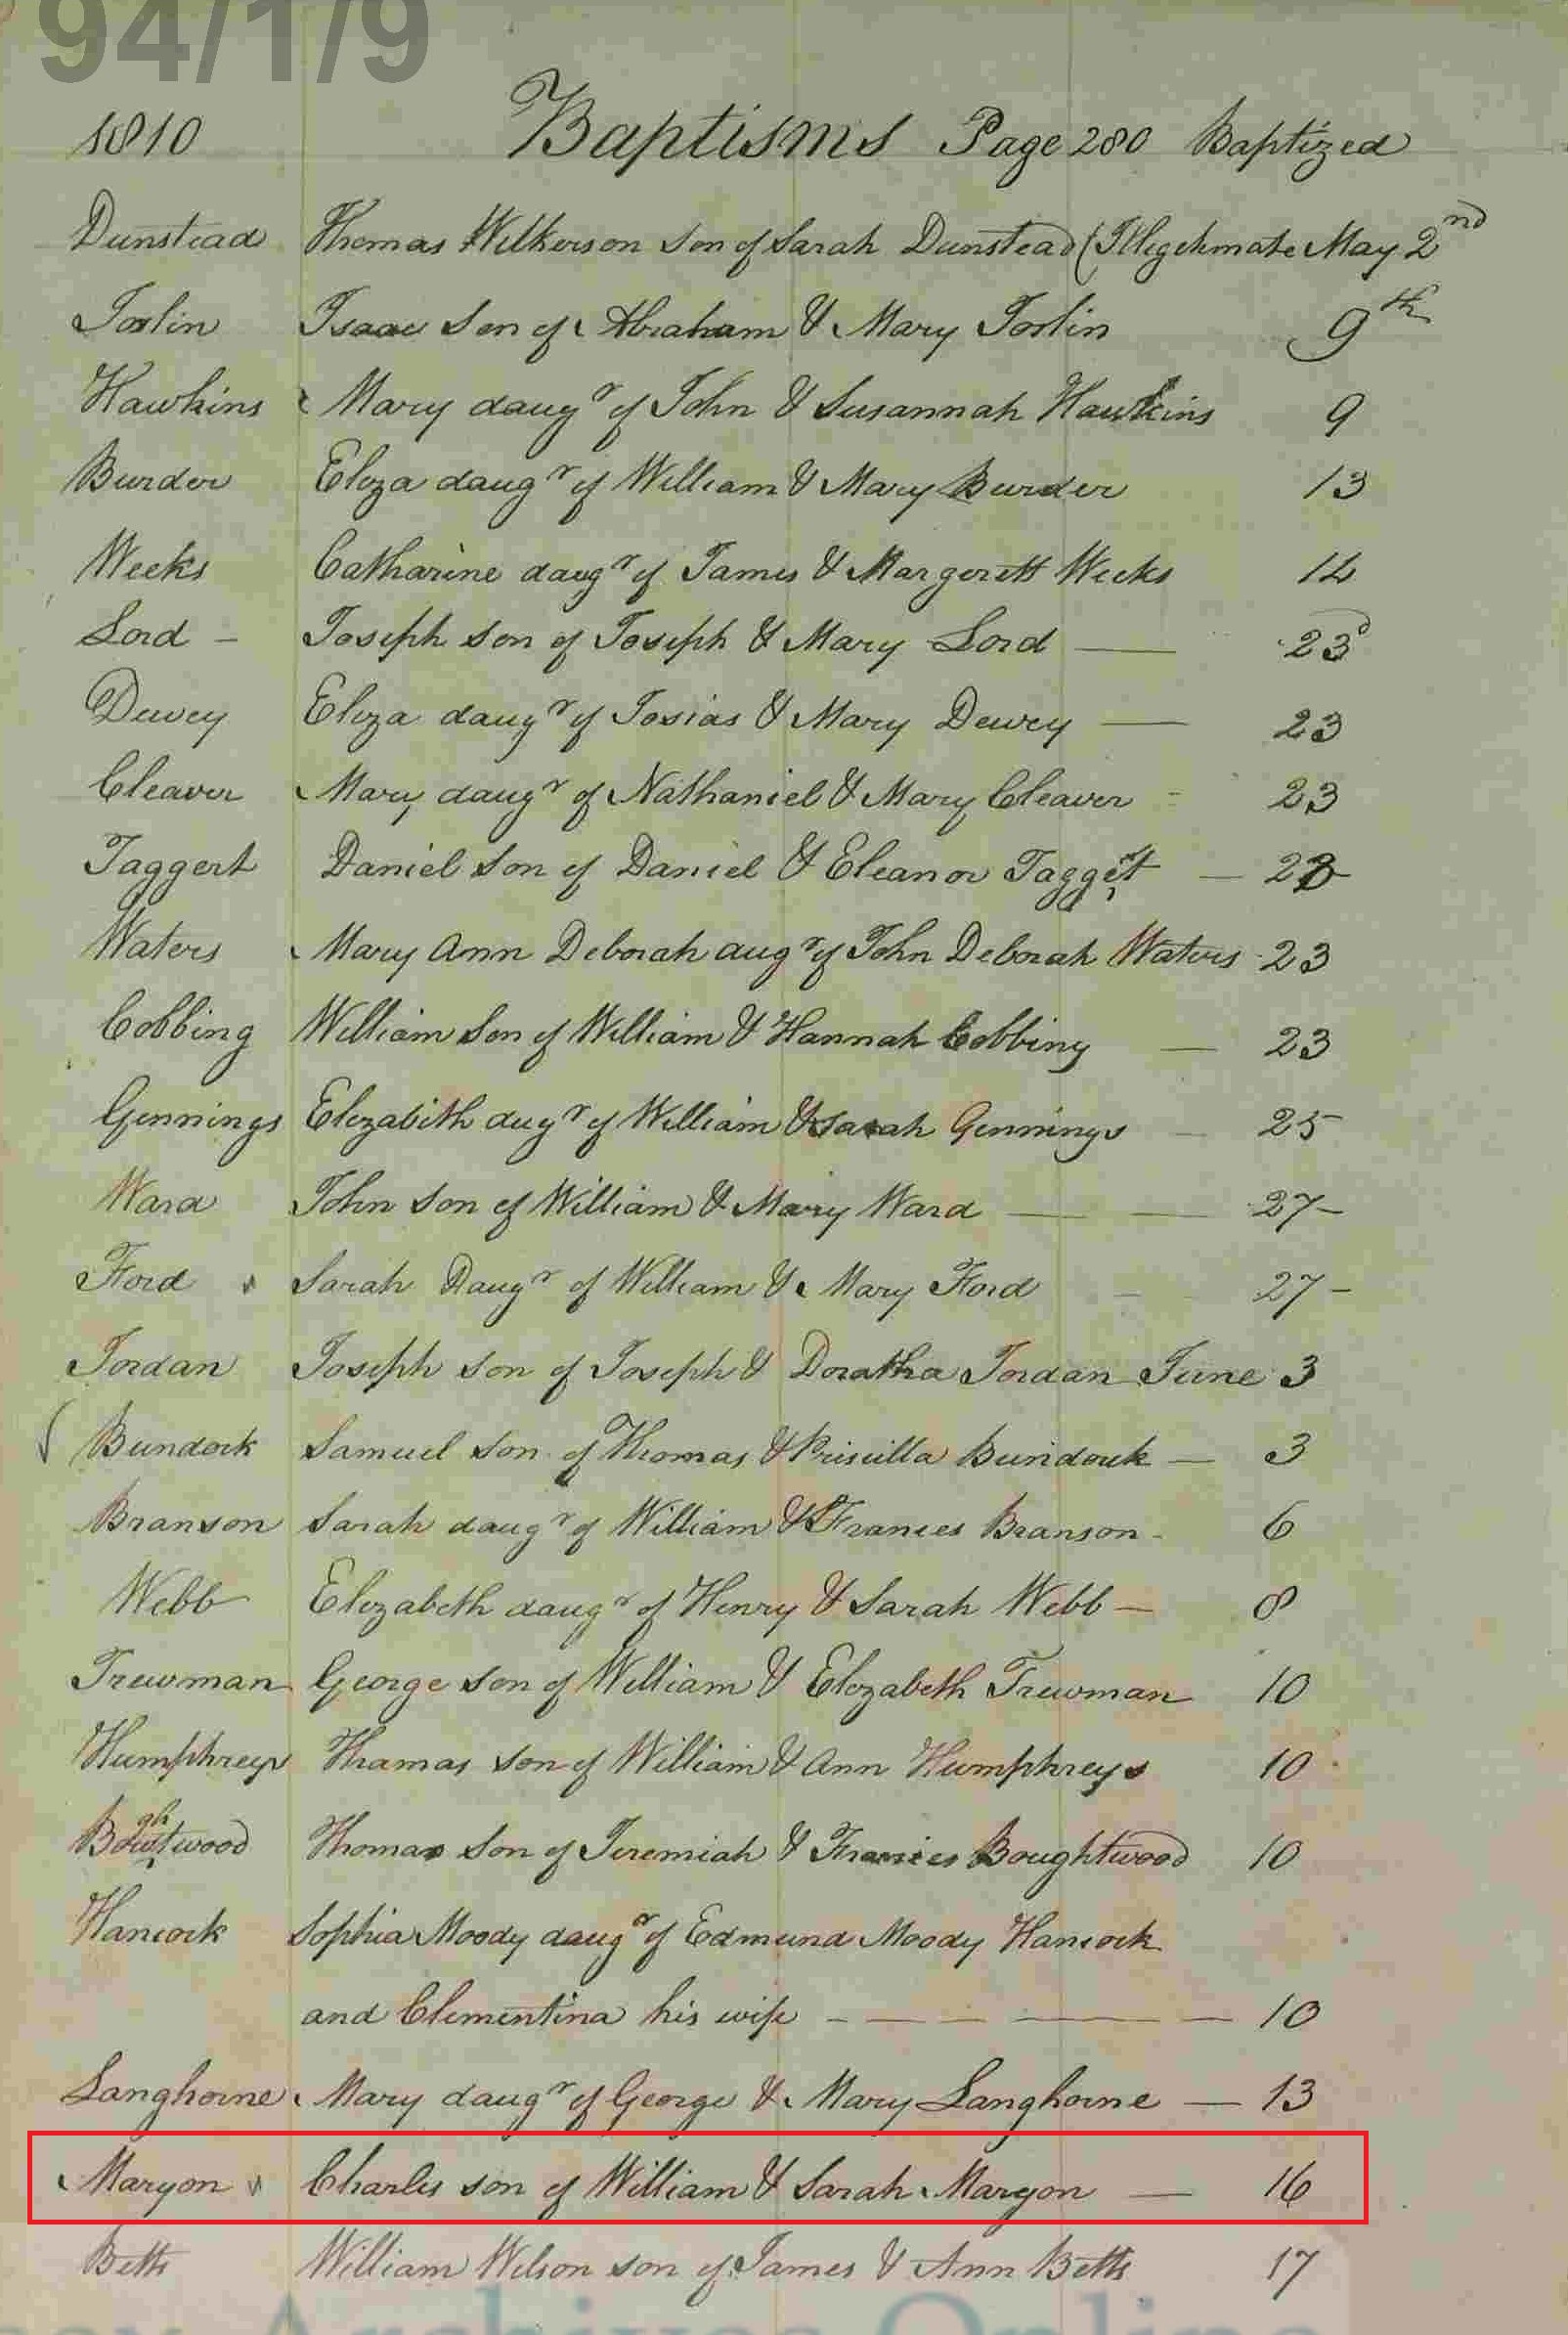 94/1/9
1810 Baptisms Page 280 Baptized
Dunstead Thomas Wilkerson son of Sarah Dunstead (Illegetimate May 2nd
Joslin Isaac Son of Abraham & Mary Joslin 9th
Hawkins Mary daugr of John & Susannah Hawkins 9
Burder Eliza daugr of William & Mary Burder 13
Weeks Catharine daugr of James & Margerett Weeks 14
Lord - Joseph son of Joseph & Mary Lord — 23d
Dewey Eliza daugr of Josias & Mary Dewey — 23
Cleaver Mary daugr of Nathaniel & Mary Cleaver - 23
Taggert Daniel son of Daniel & Eleanor Tagget — 23
Waters Mary Ann Deborah augr of John Deborah Waters 23
Cobbing William Son of William & Hannah Cobbing — 23
Gennings Elizabeth dugr of William & Sarah Gennings — 25
Ward John son of William & Mary Ward — — 27-
Ford Sarah Daugr of William & Mary Ford — 27-
Jordan Joseph son of Joseph & Doratha Jordan June 3
Bundock Samuel son of Thomas & Priscilla Bundock — 3
Branson Sarah daugr of William & Frances Branson - 6
Webb Elizabeth daugr of Henry & Sarah Webb — 8
Trewman George son of William & Elizabeth Trewman 10
Humphreys Thamas son of William & Ann Humphreys 10
Boughtwood Thomas Son of Jeremiah & Frances Boughtwood 10
Hancock Sophia Moody daugr of Edmund Moody Hancock
and Clementina his wife - — - — — 10
Langhorne Mary daugr of George & Mary Langhorne — 13
Maryon Charles son of William & Sarah Maryon — 16
Betts William Wilson son of James & Ann Betts 17
Archives Online